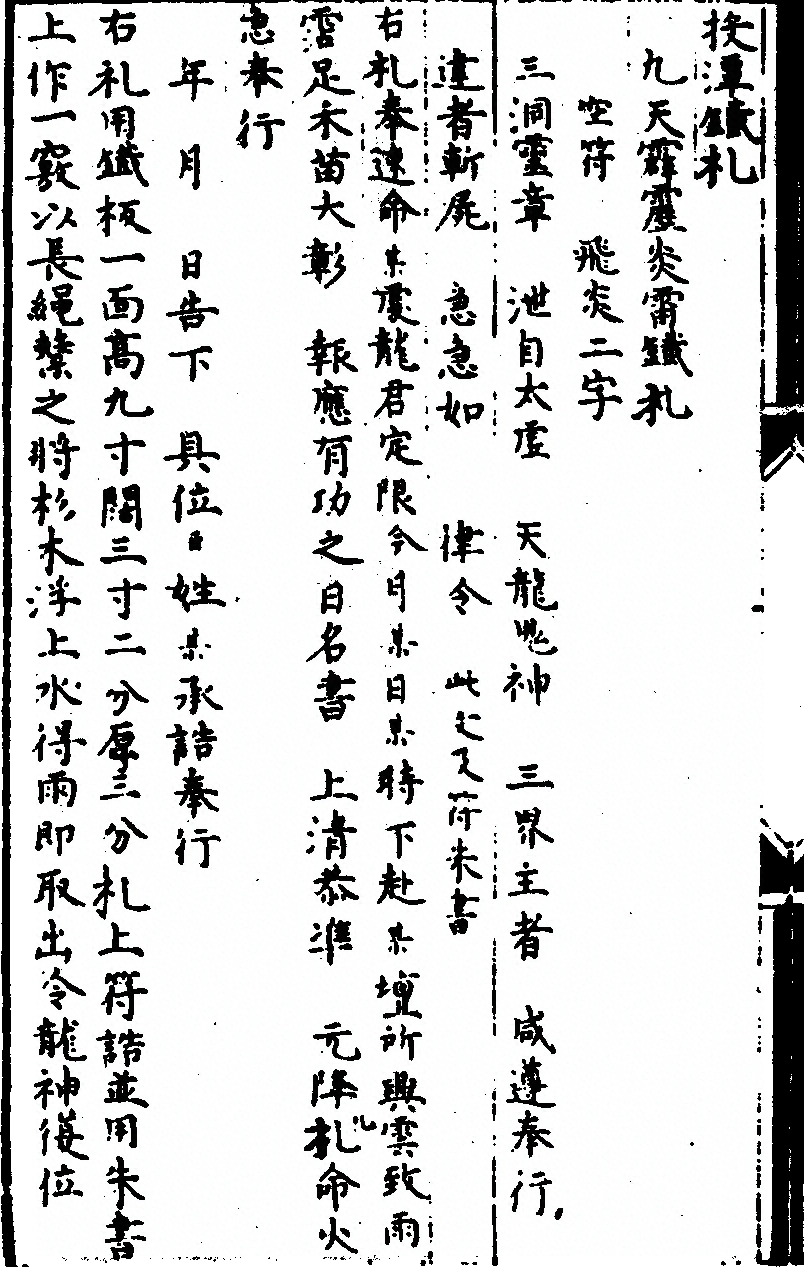 投潭鐵札
九天霹靂炎雷鐵札
空符　飛炎二字
三洞靈章　泄自太虛　天龍鬼神　三界主者　咸遵奉行
違者斬屍　急急如　律令　此乂又符朱書
右札奉速命某處龍君定限今月某日某時下赴某壇所興雲致雨
霑足禾苗大彰　報應有功之日名書　上清恭準　元降札命火
急奉行
年　月　日告下　具位臣姓某承誥奉行
右札用鐵板一面高九寸闊三寸二分厚三分札上符誥並用朱書
上作一竅以長繩繫之將杉木浮上水得雨即取出令龍神復位